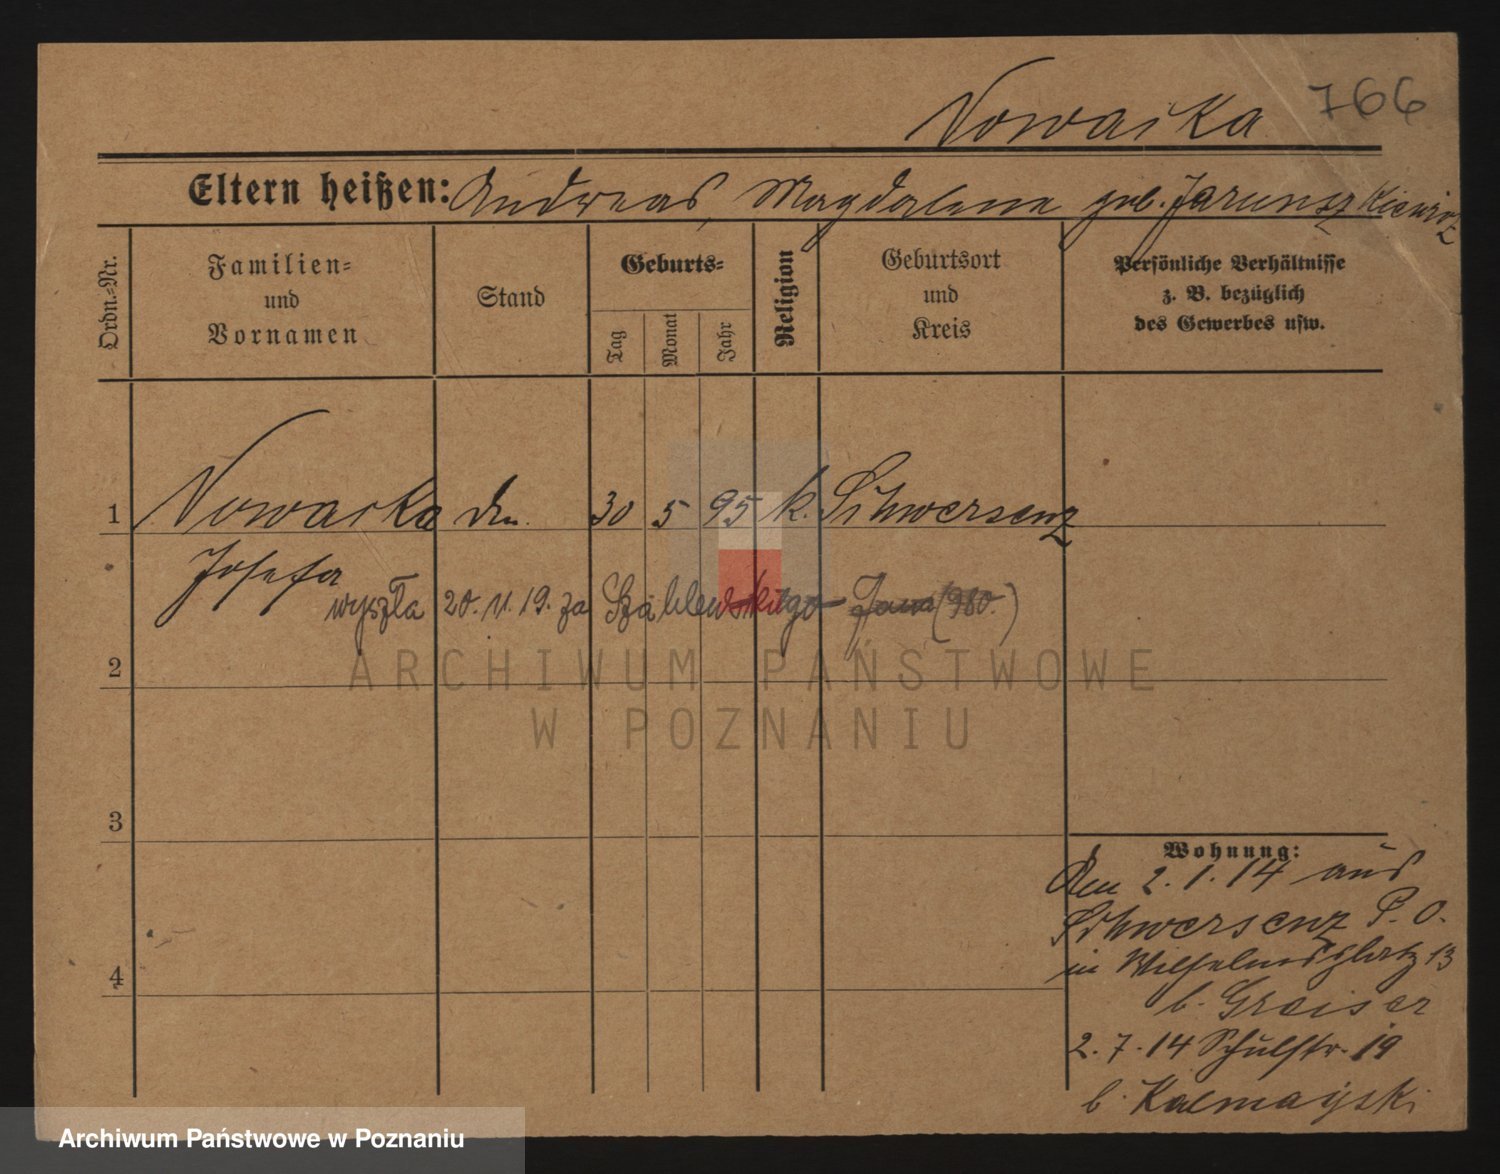 Nowacka 766
Eltern heißen: Andreas, Magdalena geb. Jarunszkiewicz
Ordn.-Nr.
Familien-
und
Vornamen
Stand
Geburts-
Tag
Monat
Jahr
Religion
Geburtsort
und
Kreis
Persönliche Verhältnisse
z. B. bezüglich
des Gewerbes usw.
1 Nowacka 30 5 95 k. Schwersenz
Josefa
wyszła 20. 11. 19. za Jana (980.)
2
ARCHIWUM PAŃSTWOWE
W POZNANIU
3
4
Wohnung:
Den 2.1.14 aus
Schwersenz P. O.
in Wilhelmsplatz 13
b. Greiser
2.7.14 Schulstr. 19
b. Kaczmayski
Archiwum Państwowe w Poznaniu